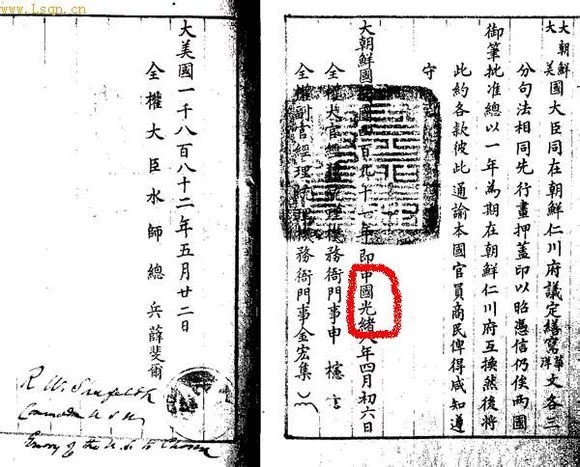 大朝鮮大美國大臣同在朝鮮仁川府議定繕寫華洋文各三
分句法相同先行畫押蓋印以昭憑信仍俟兩國
御筆批准總以一年為期在朝鮮仁川府互換然後將
此約各款彼此通諭本國官員商民俾得咸知遵
守
大朝鮮國四百九十一年即中國光緒八年四月初六日
全權大官經理統理機務衙門事申櫶
全權副官經理統理機務衙門事金宏集
大美國一千八百八十二年五月廿二日
全權大臣水師總兵薛斐爾
R. W. Shufeldt
Commodore U.S.N.
Envoy of the U.S. to Chosen
Lsqn.cn